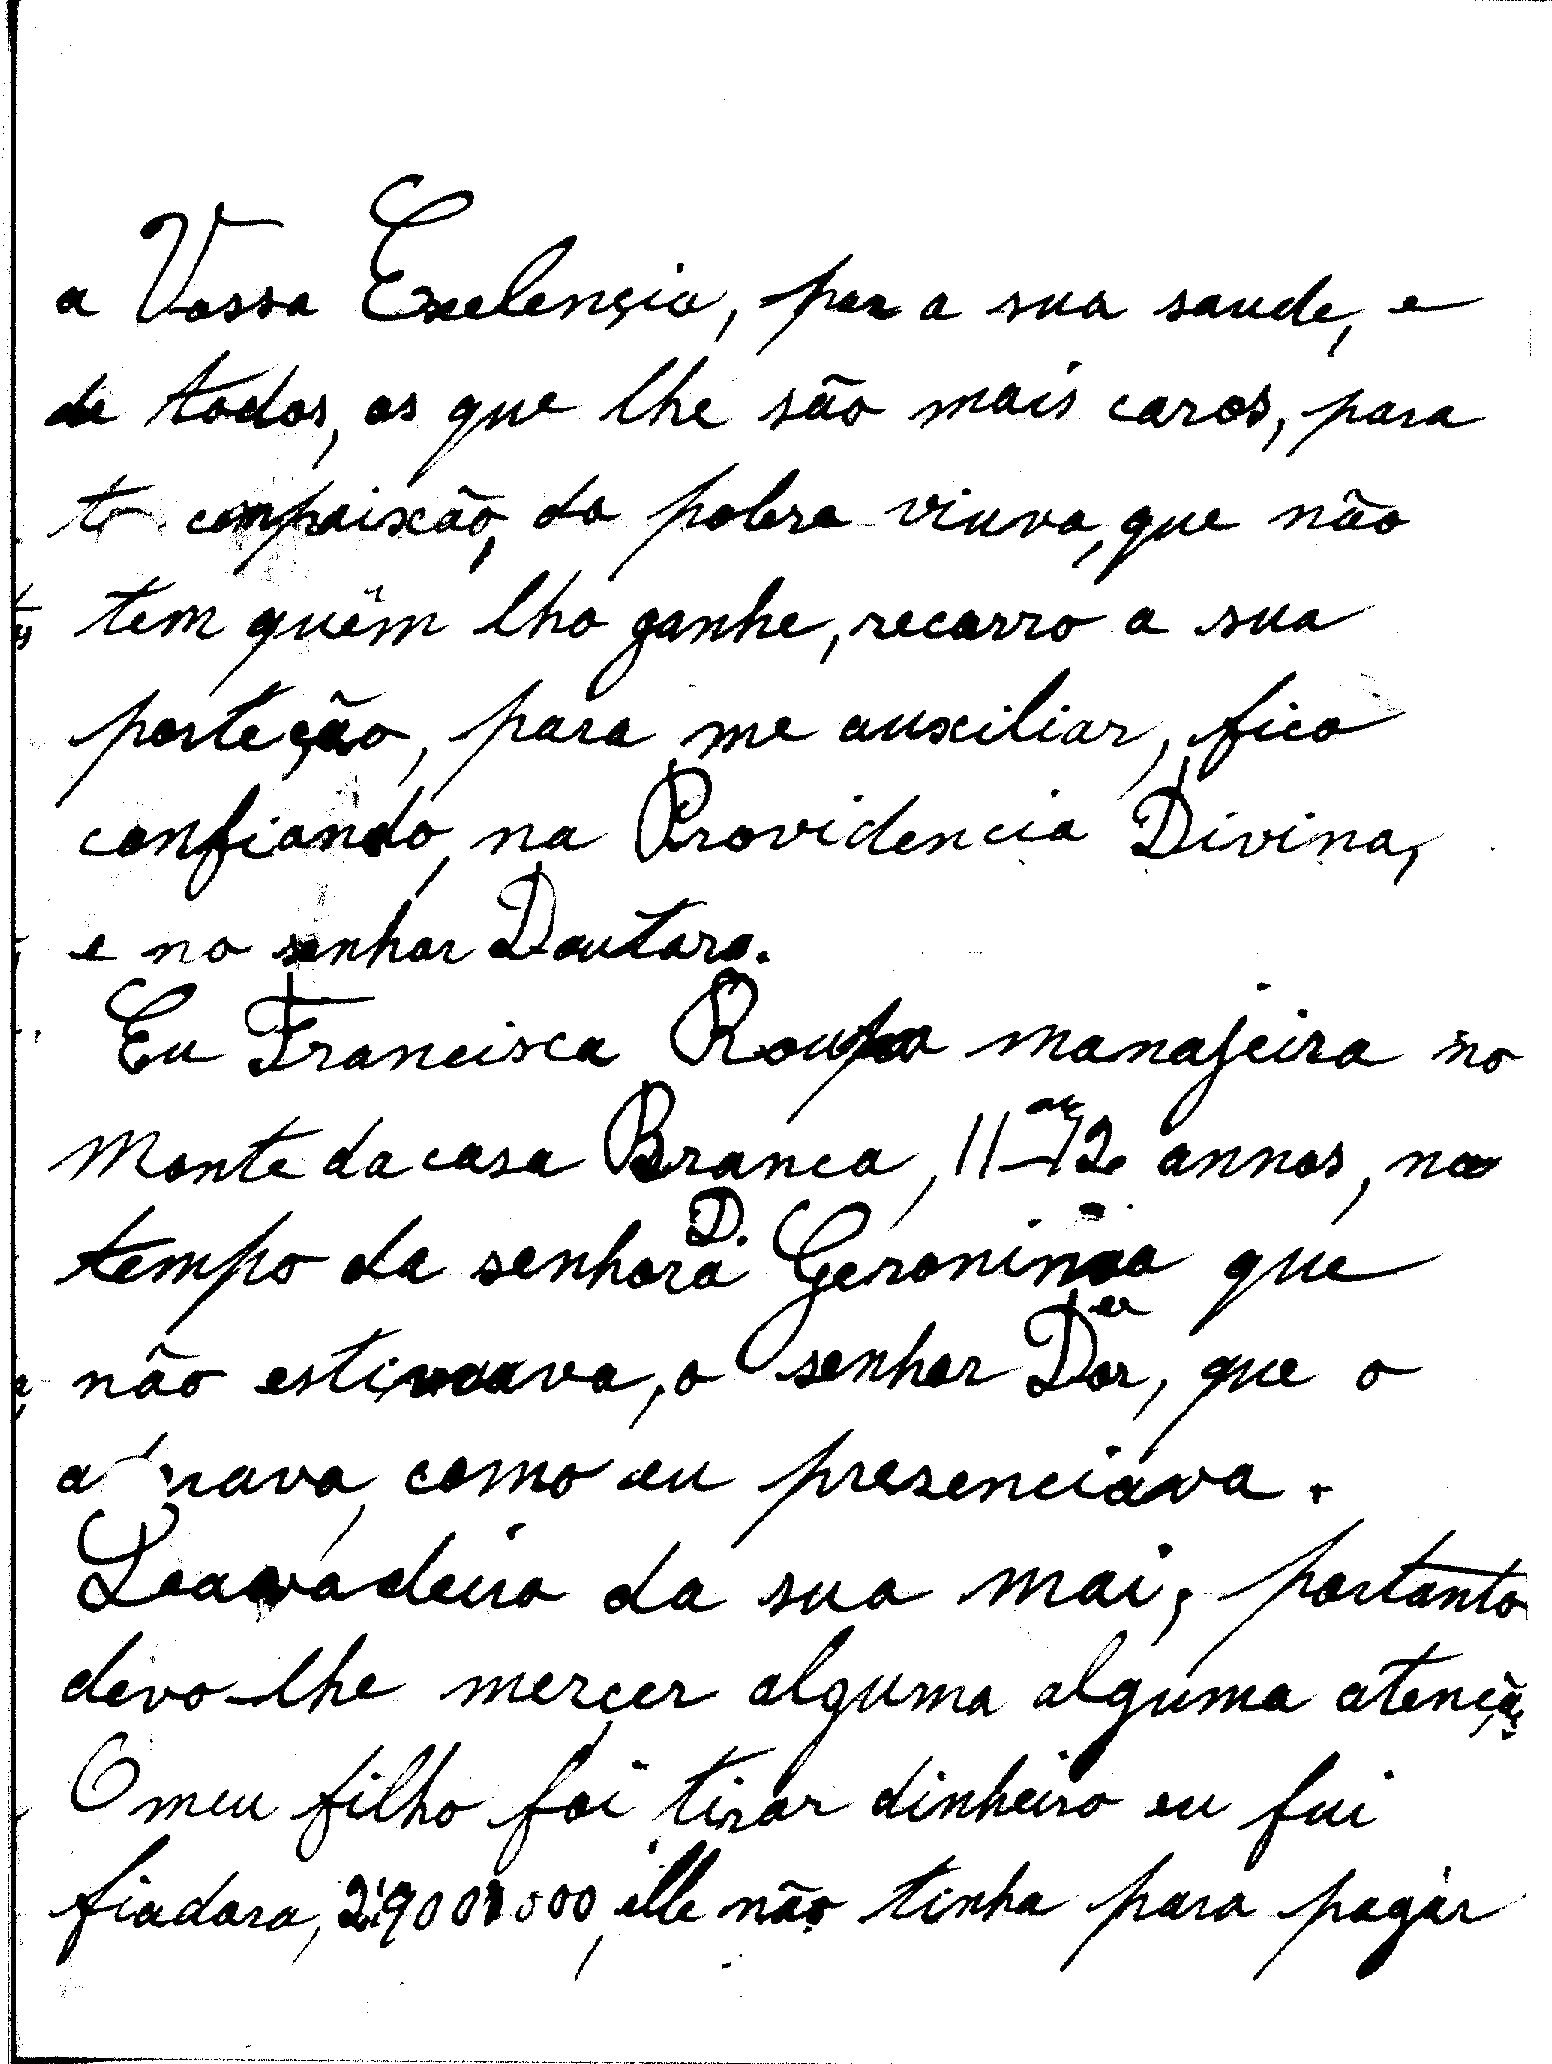 a Vossa Exelençia, por a sua saude, e
de todos, os que lhe são mais caros, para
te compaixão, da pobre viuva, que não
tem quem lho ganhe, recorro a sua
porteção, para me auxiliar, fico
confiando, na Providencia Divina,
e no senhor Doutoro.
Eu Francisca Roupa manajeira no
Monte da casa Branca, 11 ou 12 annos, no
tempo da senhora D. Geronima que
não estimava, o senhor Dor, que o
como eu presenciava.
Leavadeira da sua mai, portanto
devo-lhe merçer alguma alguma atenção
O meu filho foi tirar dinheiro eu fui
fiadora, elle não tinha para pagar